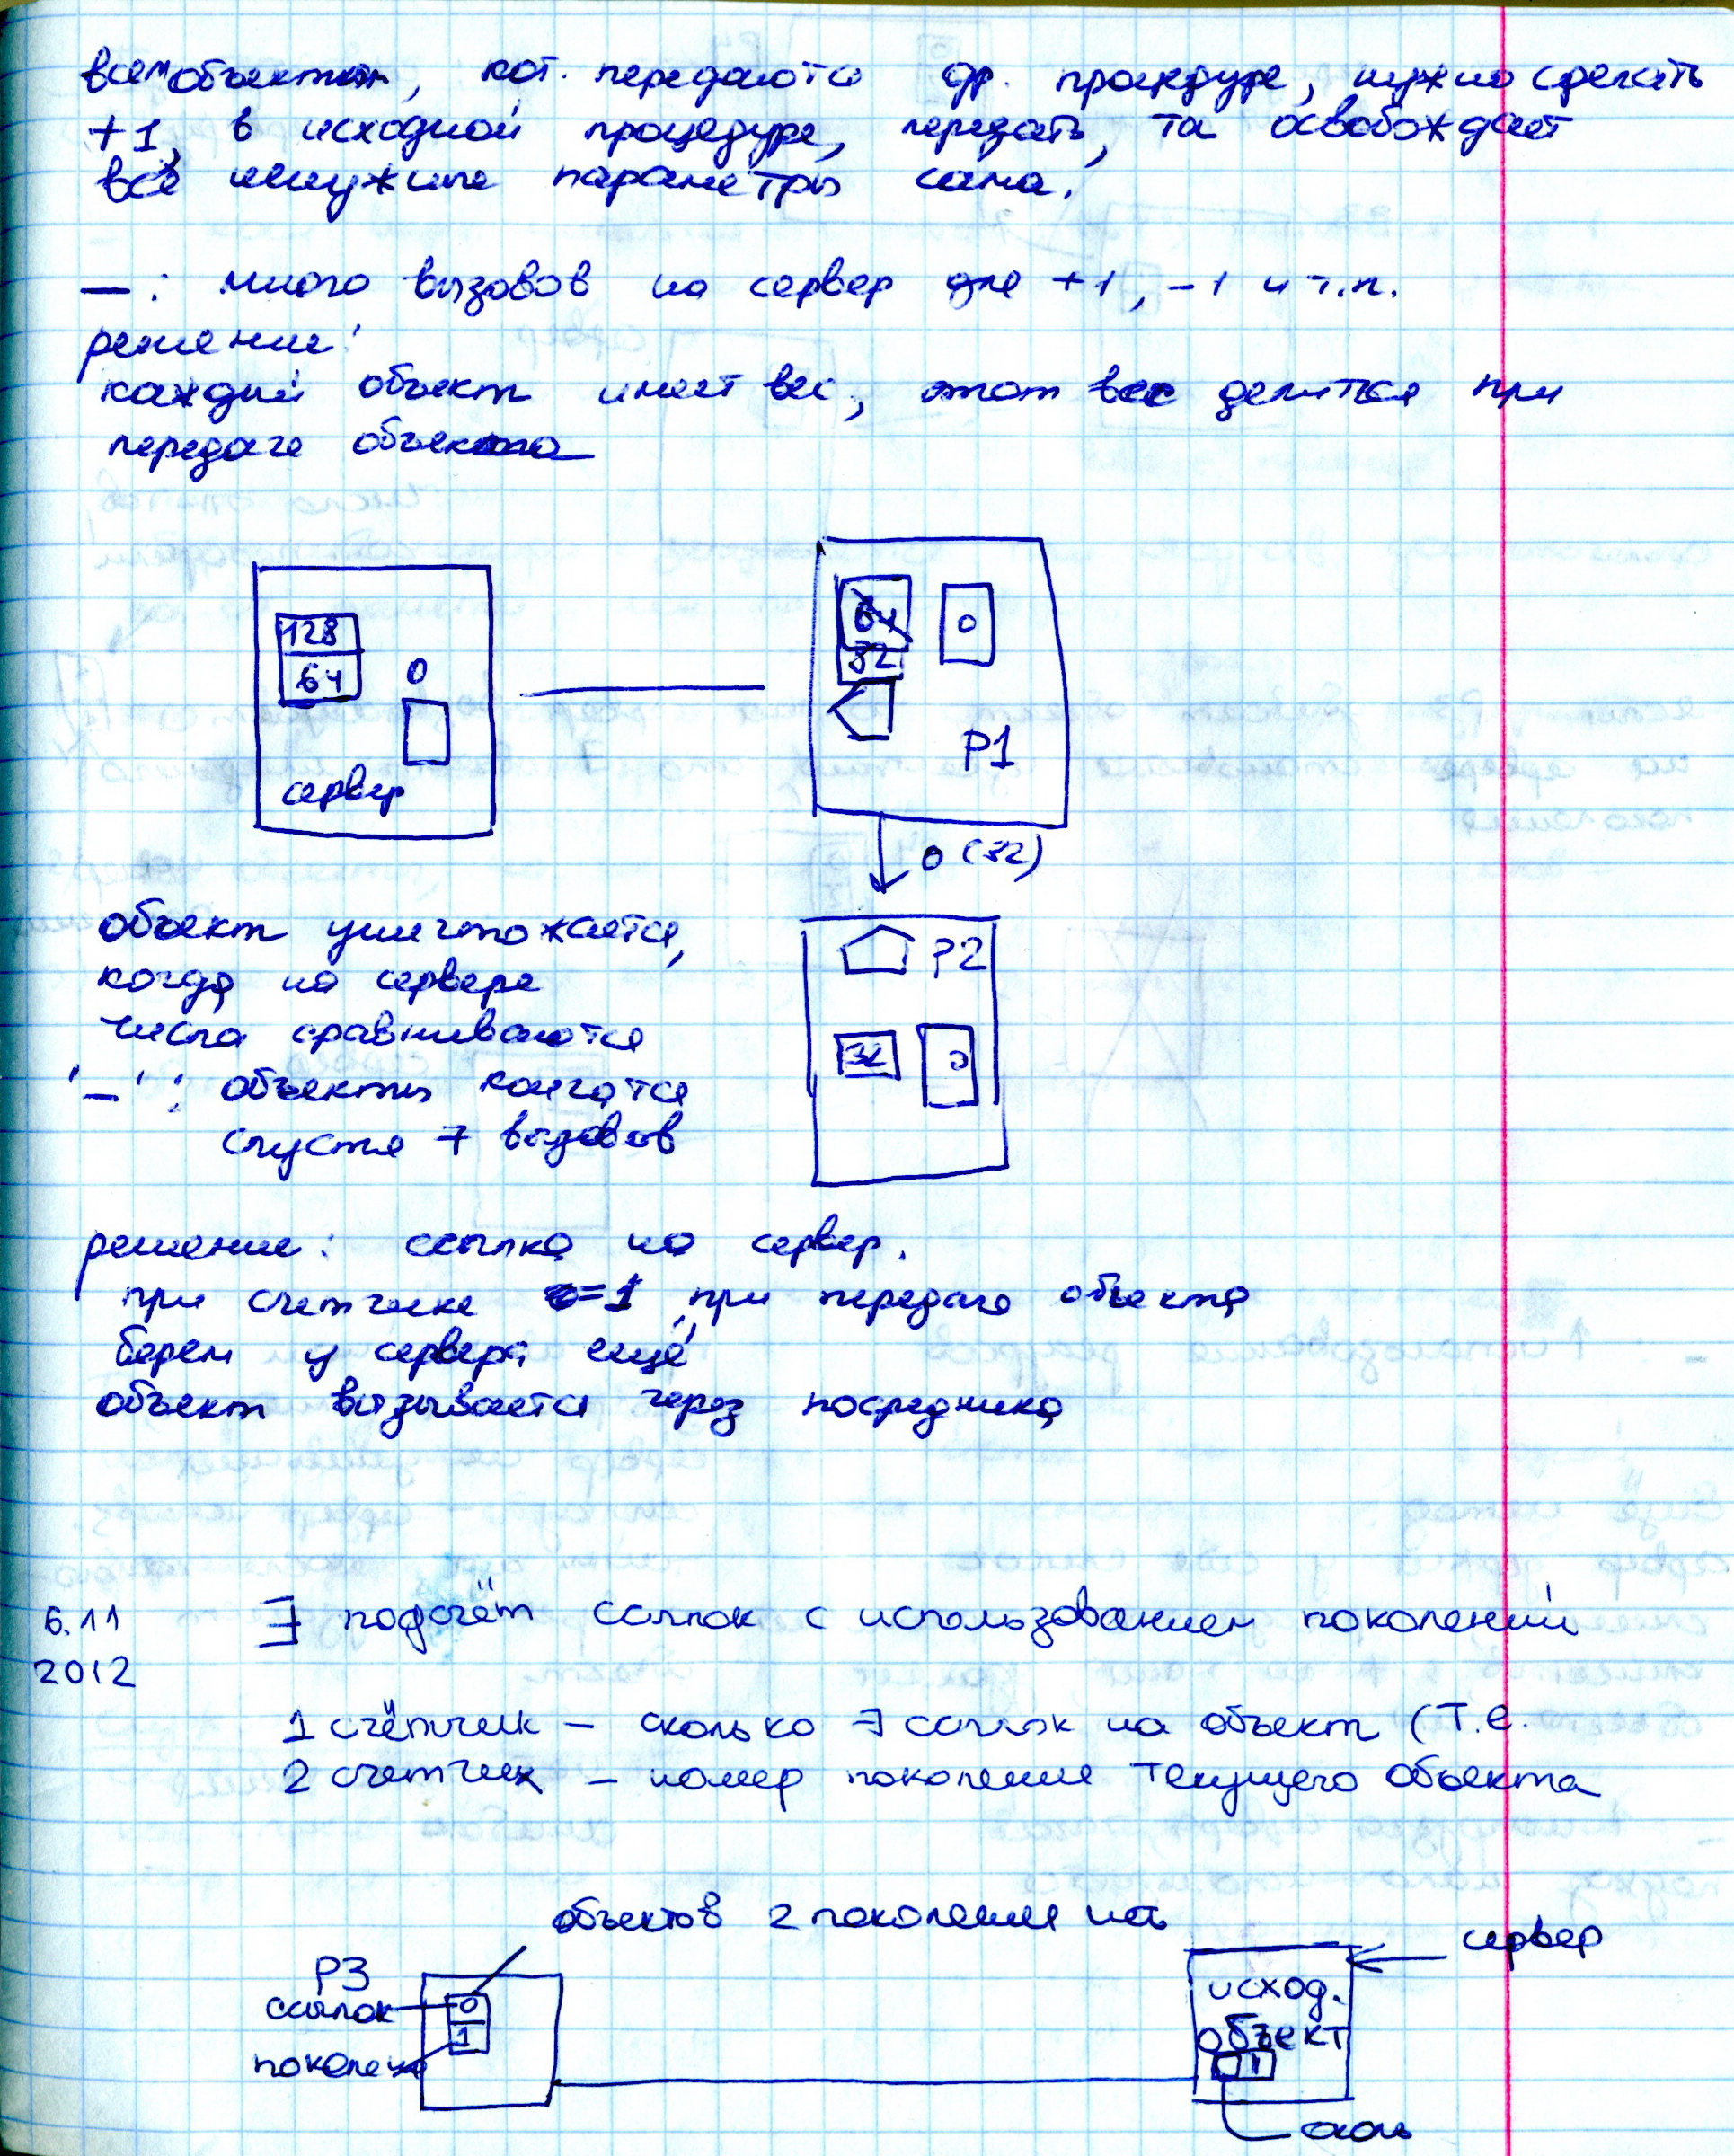 всем объектам, кот. передаются др. процедуре, нужно сделать
+1, в исходной процедуре, передать, та освобождает
все ненужные параметры сама.
— : много вызовов на сервер для +1, -1 и т.п.
решение:
каждый объект имеет вес, этот вес делится при
передаче объекта
128
64
0
сервер
64
32
0
P1
0 (32)
P2
32
0
объект уничтожается,
когда на сервере
числа сравниваются
'—' : объекты кончатся
спустя 7 вызовов
решение: ссылка на сервер.
при счетчике =1, при передаче объекта
берем у сервера ещё
объект вызывается через посредника
6.11
2012
∃ подсчёт ссылок с использованием поколений
1 счётчик — сколько ∃ ссылок на объект (т.е.
2 счетчик — номер поколения текущего объекта
объектов 2 поколения нет
сервер
P3
ссылок
0
1
поколение
исход.
объект
1
сколь